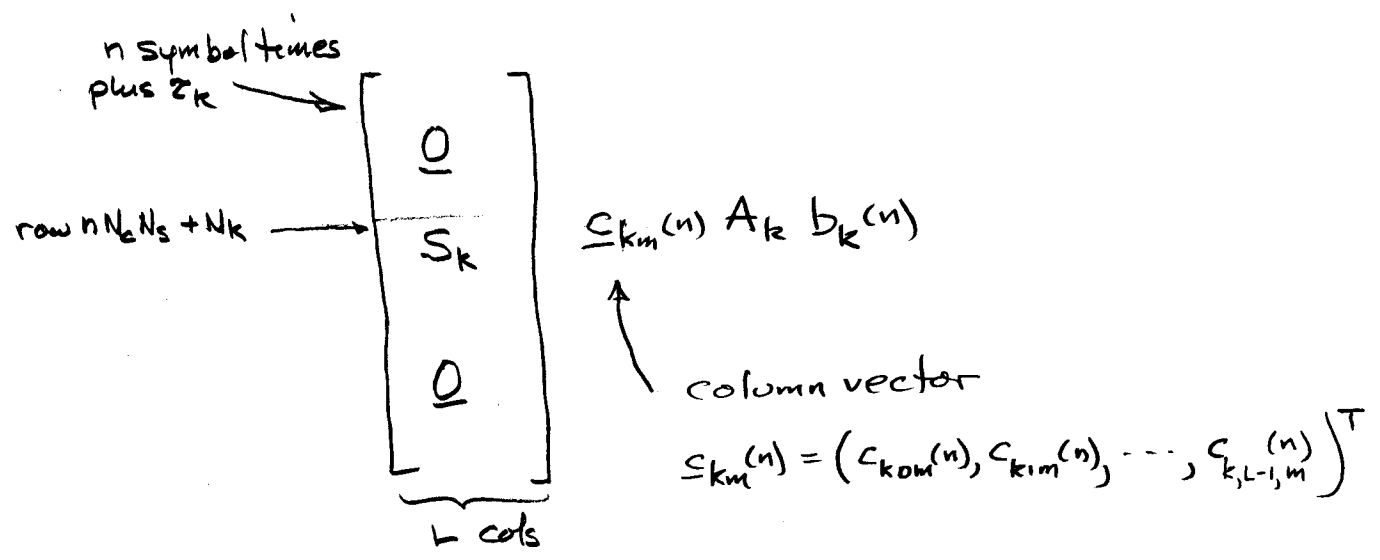 n symbol times
plus τ_k
0
row nN_cN_s + N_k
S_k
c_km(n) A_k b_k(n)
0
column vector
c_km(n) = (c_k0m(n), c_k1m(n), ---, c_k,L-1,m(n))^T
L cols